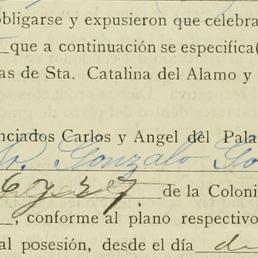 obligarse y expusieron que celebra
que a continuación se especifica(
as de Sta. Catalina del Alamo y
nciados Carlos y Angel del Pala
Gonzalo
6 y 27 de la Coloni
, conforme al plano respectivo
al posesión, desde el día